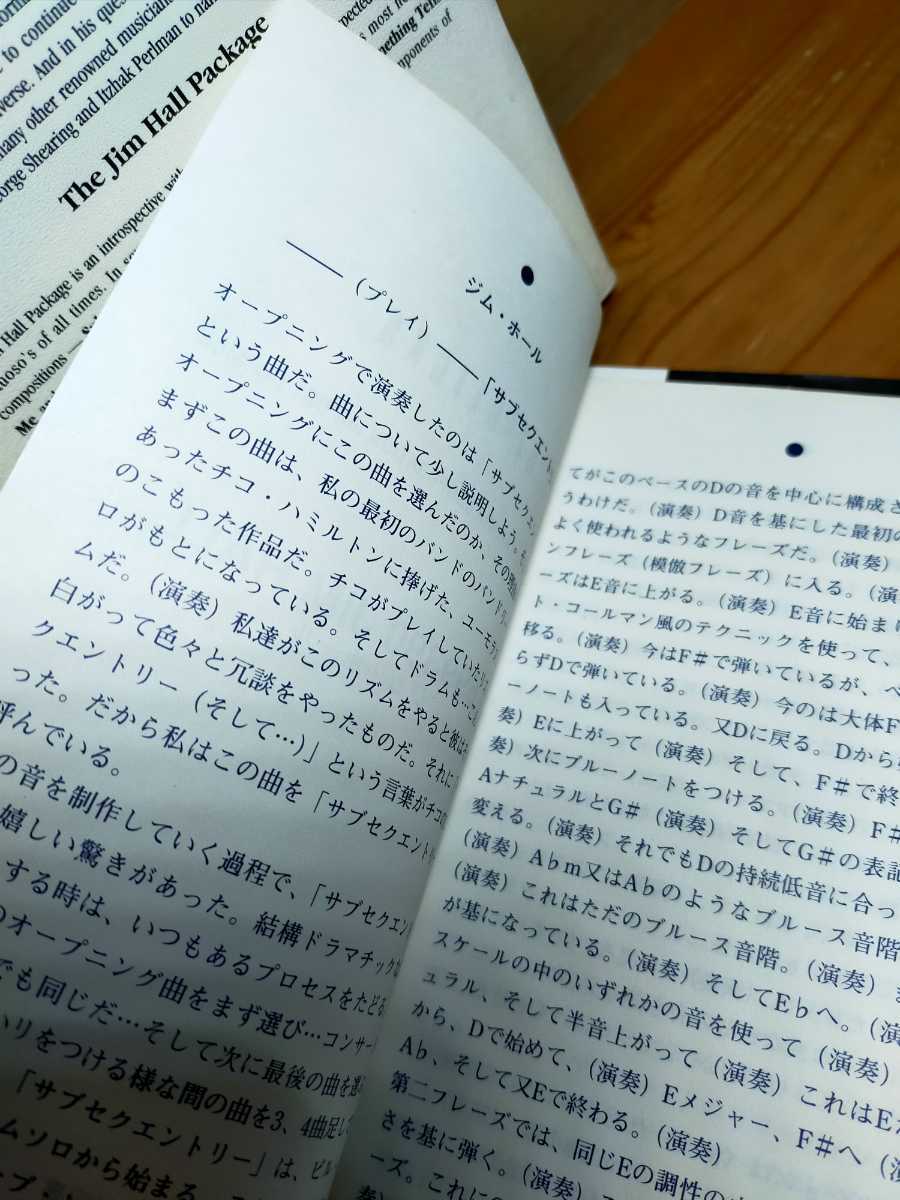 to continue
verse. And in his ques
many other renowned musician
orge Shearing and Itzhak Perlman to nam
spected
s most no
mething Tend
omponents of
The Jim Hall Package
Hall Package is an introspective with
uoso's of all times. In
compositions
Me
●
ジム・ホール
——（プレイ）——「サブセクエント
オープニングで演奏したのは「サブセクエ
という曲だ。曲について少し説明しよう。
オープニングにこの曲を選んだのか、その
まずこの曲は、私の最初のバンドのバンドリー
あったチコ・ハミルトンに捧げた、ユーモア
のこもった作品だ。チコがプレイしていた
ロがもとになっている。そしてドラムも…こ
ムだ。（演奏）私達がこのリズムをやると彼は
白がって色々と冗談をやったものだ。それに
クエントリー（そして…）」という言葉がチコの
った。だから私はこの曲を「サブセクエントリ
呼んでいる。
の音を制作していく過程で、「サブセクエン
嬉しい驚きがあった。結構ドラマチックな
する時は、いつもあるプロセスをたどる
のオープニング曲をまず選び…コンサー
でも同じだ…そして次に最後の曲を選
ハリをつける様な間の曲を3、4曲足して
「サブセクエントリー」は、ビル
ムソロから始まる。
●
てがこのベースのDの音を中心に構成さ
うわけだ。（演奏）D音を基にした最初の
よく使われるようなフレーズだ。（演奏）
ンフレーズ（模倣フレーズ）に入る。（演
ーズはE音に上がる。（演奏）E音に始ま
ト・コールマン風のテクニックを使って、
移る。（演奏）今はF♯で弾いているが、ベ
らずDで弾いている。（演奏）今のは大体F
ーノートも入っている。又Dに戻る。Dから
奏）Eに上がって（演奏）そして、F♯で終
奏）次にブルーノートをつける。（演奏）F♯
AナチュラルとG♯（演奏）そしてG♯の表記
変える。（演奏）それでもDの持続低音に合っ
（演奏）A♭m又はA♭のようなブルース音階
（演奏）これはただのブルース音階。（演奏）
が基になっている。（演奏）そしてE♭へ。（演
スケールの中のいずれかの音を使って（演奏）
ュラル、そして半音上がって（演奏）これはE
から、Dで始めて、（演奏）Eメジャー、F♯へ（演
A♭、そして又Eで終わる。（演奏）
第二フレーズでは、同じEの調性の
さを基に弾く。（演奏）
ーズ。これに